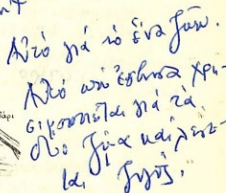 Αὐτό γιά τό ἕνα ζῶον.
Αὐτό πού ἔστησα χρη-
σιμοποιεῖται γιά τά
δυό ζῶα καί λέγε-
ται ζυγός.